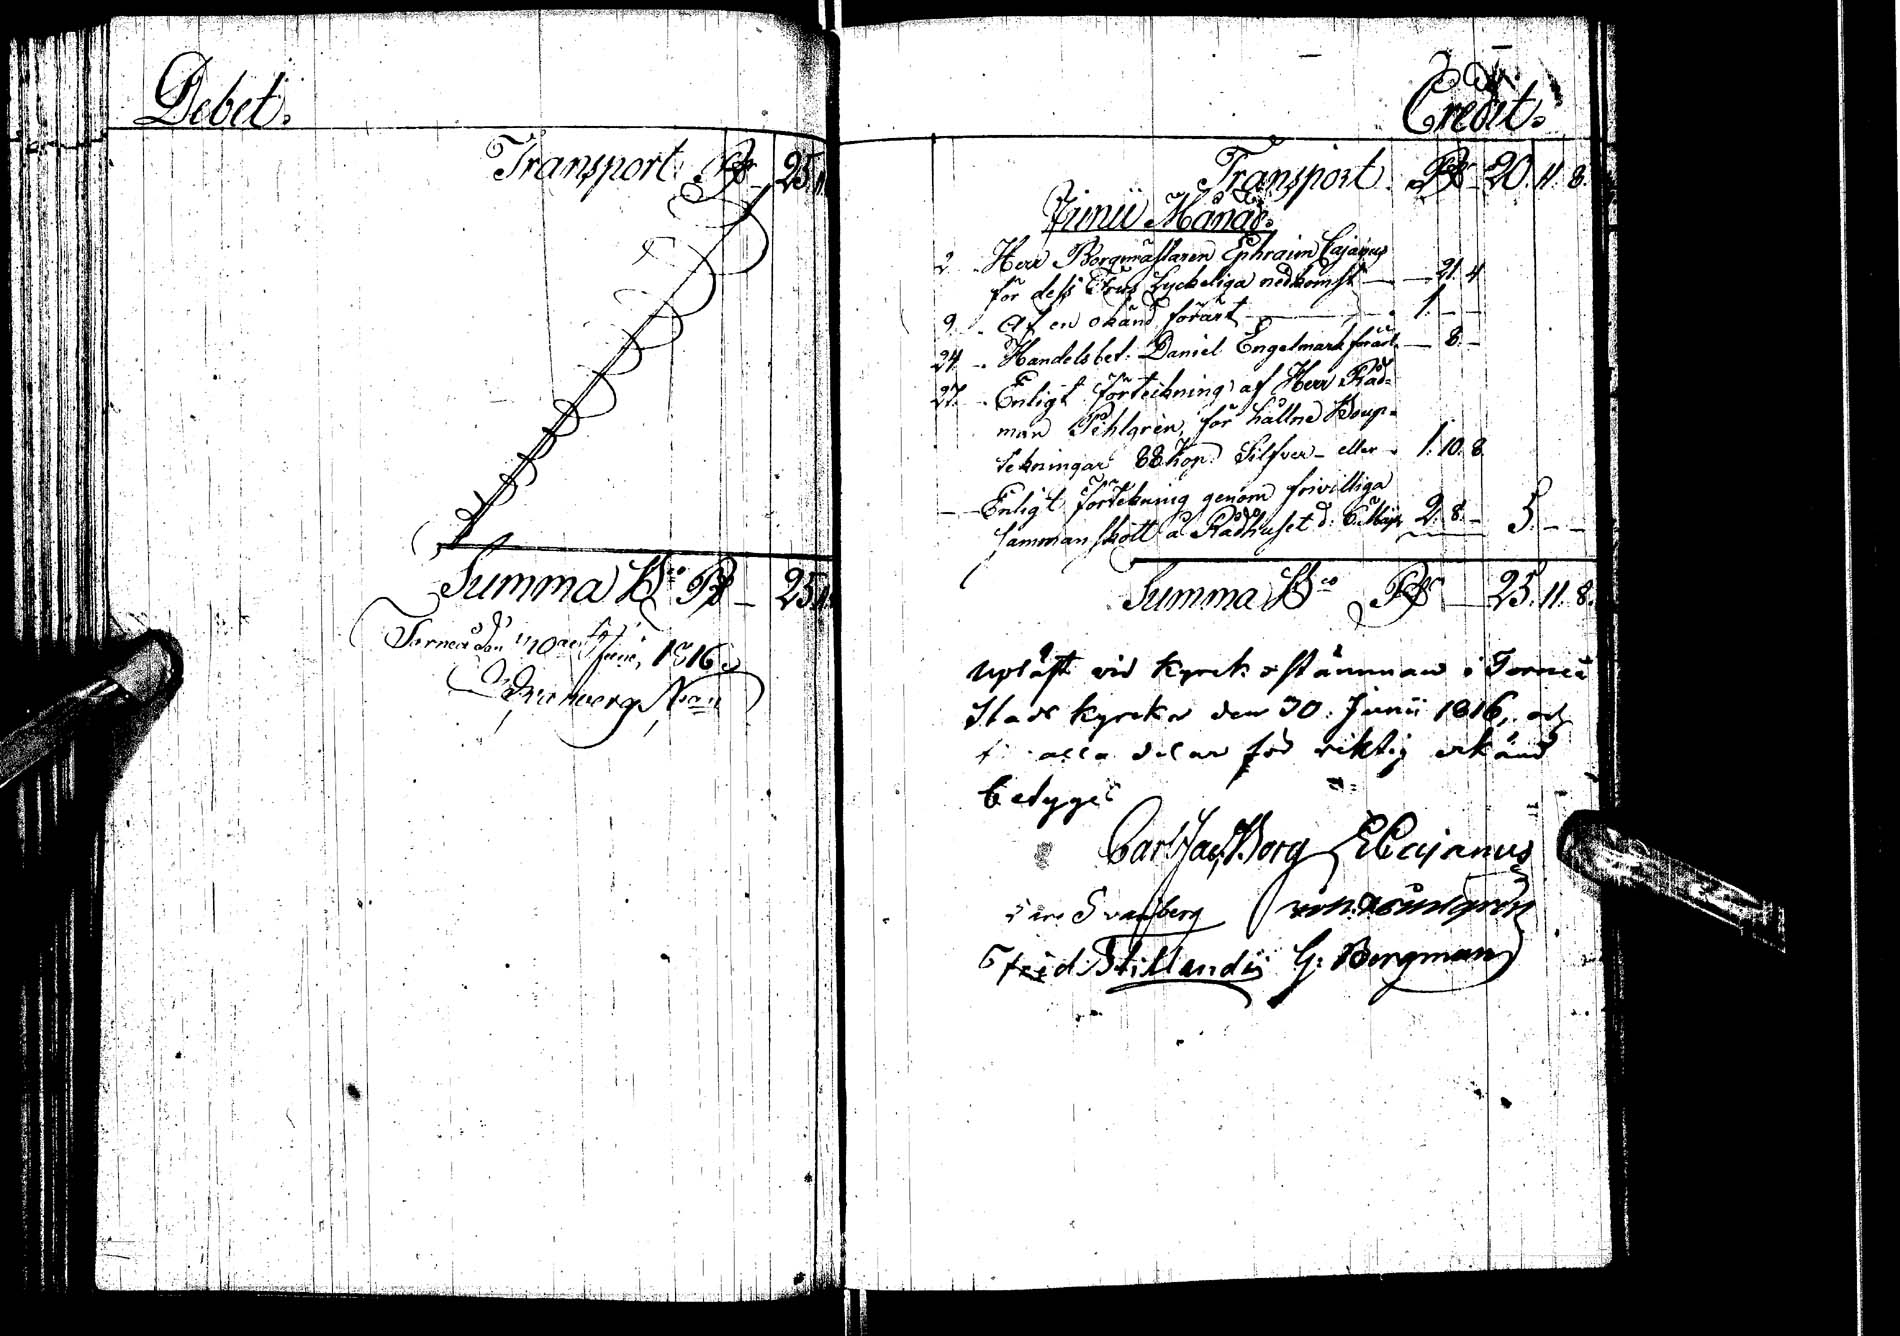 Debet.
Transport. Rß - 25 11
Summa Bco Rß - 25 11.
Torneå den Junii, 1816.
Credit.
Transport. Rß - 20. 11. 8.
Junii Månad.
2. Herr Borgmästaren Ephraim Cajanus
för dess Frus Lyckeliga nedkomst — 21. 4
9. Af en okänd förärt — 1. - -
24. Handelsbet. Daniel Engelmark förärt — 8. -
27. Enligt förteckning af Herr Råd-
man Pihlgren, för hållne Koup-
tekningar 88 kop. Silfver - eller - 1. 10. 8
— Enligt förtekning genom frivilliga
sammanskott å Rådhuset d: 2. 8. - 5. - -
Summa Bco Rß — 25. 11. 8.
Upläst vid Kyrko stämman i Torneå
Stads kyrka den 30. Junii 1816, och
alla delar för riktig erkänd
betygar
Carl Jac. Borg ECajanus
Svanberg
Stillandij G: Bergman